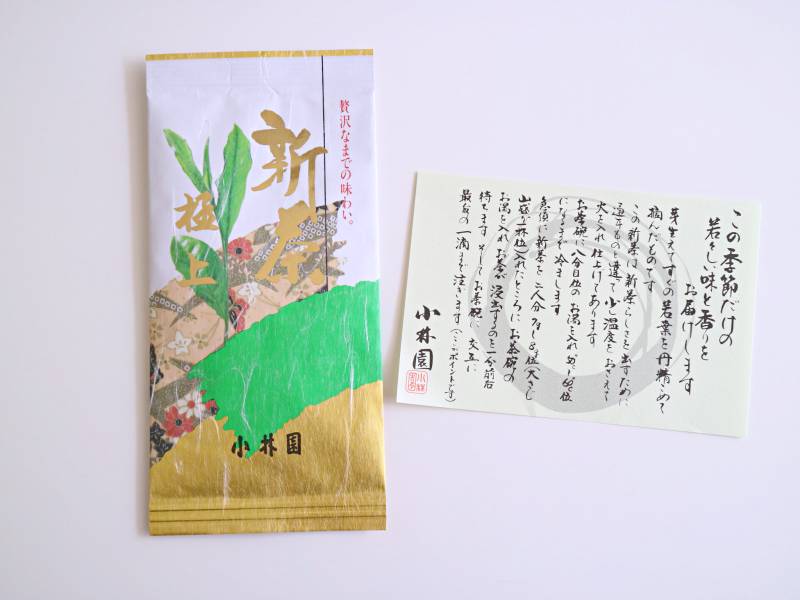 贅沢なまでの味わい。
新茶
極上
小林園
この季節だけの
若々しい味と香りを
お届けします
芽生えてすぐの若葉を丹精こめて
摘んだものです
この新茶は新茶らしさを出すために
通年ものと違って少し温度をおさえて
火を入れ仕上げてあります
お茶碗に八分目位のお湯を入れ
になるまで冷まします
急須に新茶を二人分
山盛り一杯位)入れたところにお茶碗の
お湯を入れお茶が浸出するのを一分前后
待ちますそしてお茶碗に交互に
最后の一滴まで注ぎます(ここがポイントです)
小林園